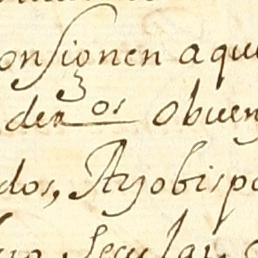 onsignen aqu
der os obuen
dos, Arzobispo
secular